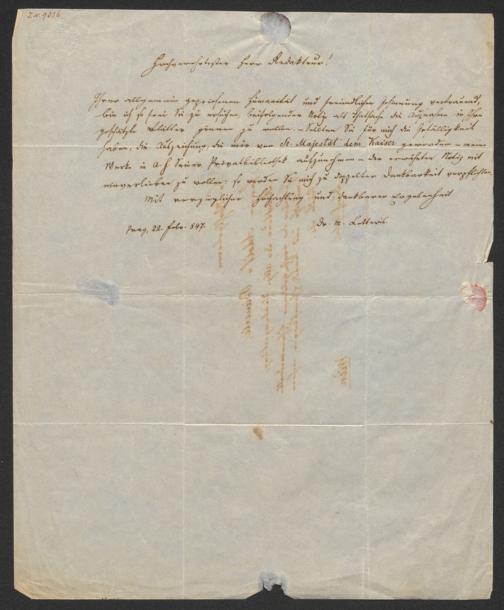 Z.N. 9336
Hochverehrtester Herr Redakteur!
Ihrer allgemein gepriesenen Humanität und freundlicher Gesinnung vertrauend,
bin ich so frei Sie zu ersuchen, beifolgender Notiz als Thatsache die Aufnahme in Ihre
geschätzten Blätter gönnen zu wollen. – Sollten Sie für mich die Gefälligkeit
haben, die Auszeichnung, die mir von Sr. Majestät dem Kaiser geworden – meine
Werke in a. h. Seiner Privatbibliothek aufzunehmen – der erwähnten Notiz mit
einverleiben zu wollen; so würden Sie mich zu doppelter Dankbarkeit verpflichten.
Mit vorzüglicher Hochachtung und dankbarer Ergebenheit
Prag, 22. Febr. 847.
Dr.